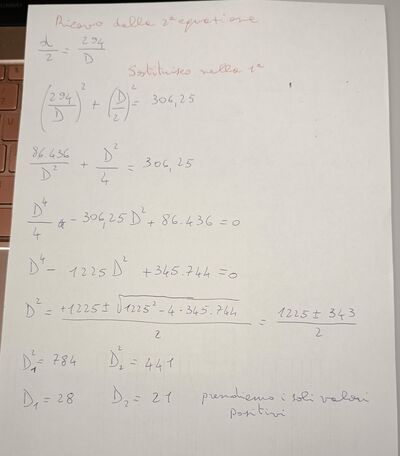 Ricavo dalla 2ª equazione
d/2 = 294/D
Sostituisco nella 1ª
(294/D)² + (D/2)² = 306,25
86.436/D² + D²/4 = 306,25
D⁴/4 - 306,25 D² + 86.436 = 0
D⁴ - 1225 D² + 345.744 = 0
D² = (+1225 ± √(1225² - 4 · 345.744))/2 = (1225 ± 343)/2
D₁² = 784 D₂² = 441
D₁ = 28 D₂ = 21 prendiamo i soli valori
positivi